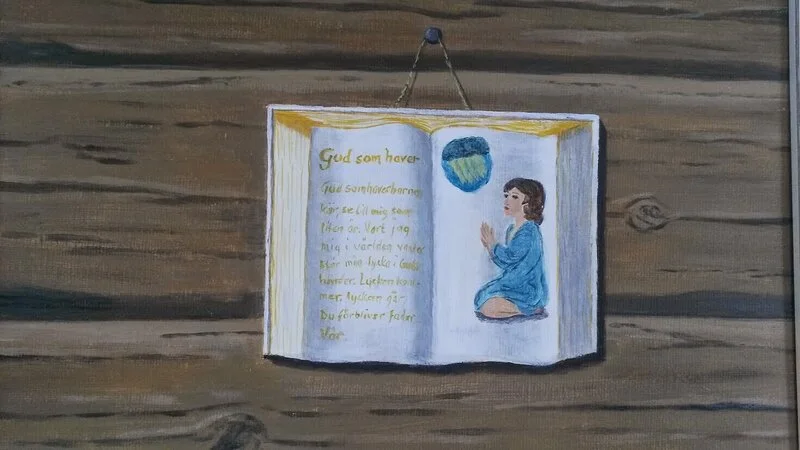 Gud som haver
Gud som haver barnen
kär, se till mig som
liten är. Vart jag
mig i världen vänder
står min lycka i Guds
händer. Lyckan kom-
mer, lyckan går-
Du förbliver Fader
Vår.